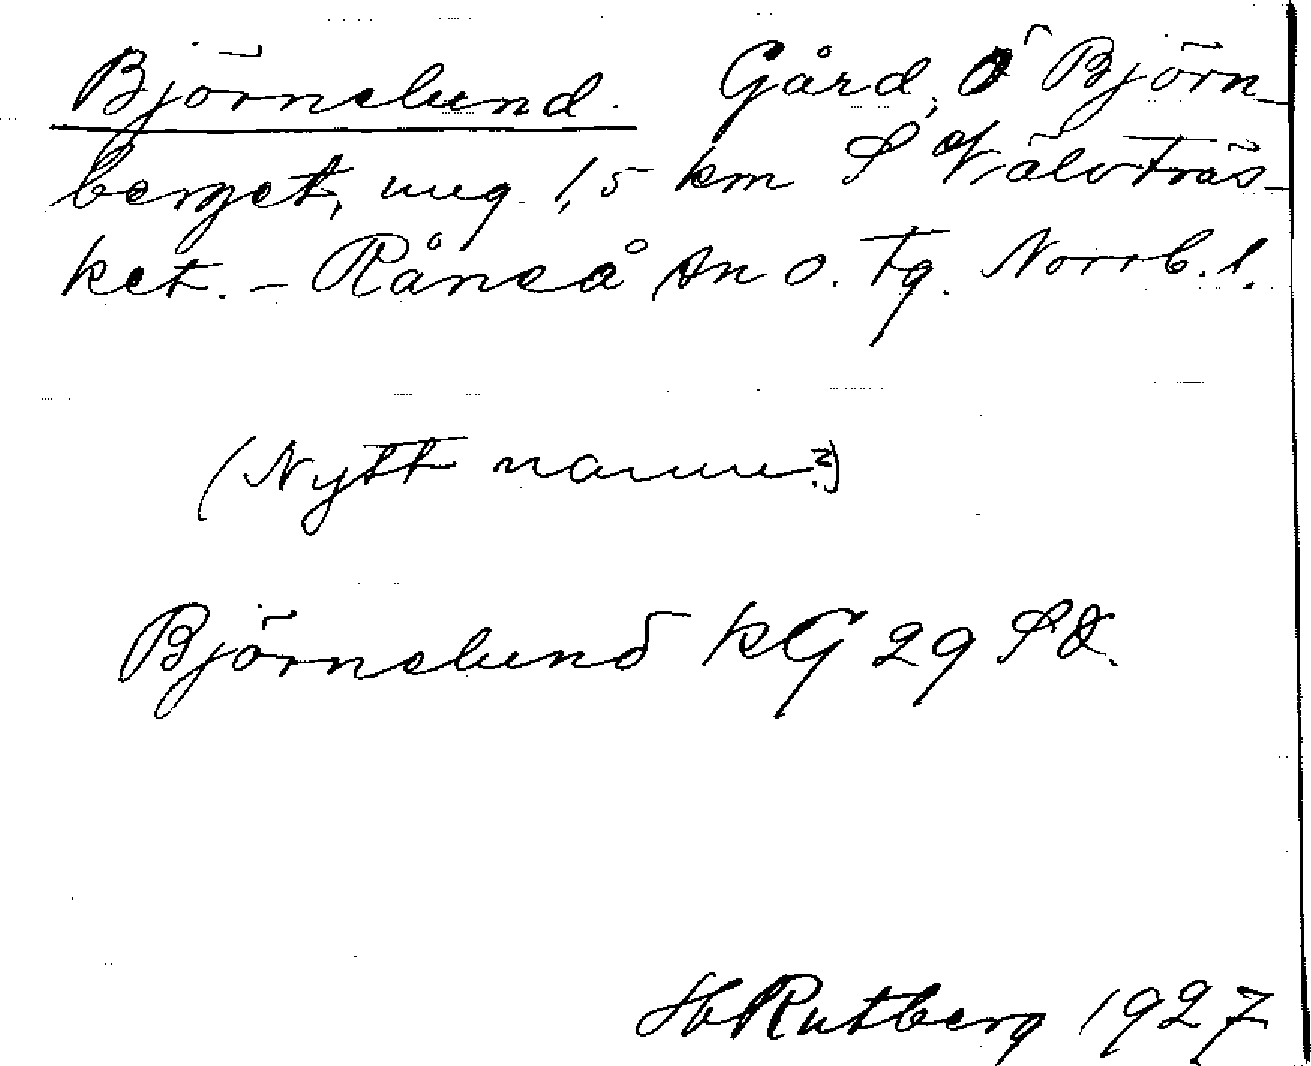 Björnslund. Gård, Ö Björn-
berget, ung. 1,5 km S Välvträs-
ket. - Råneå sn o. tg. Norrb. l.
(Nytt namn?)
Björnslund kG 29 SV.
H Rutberg 1927